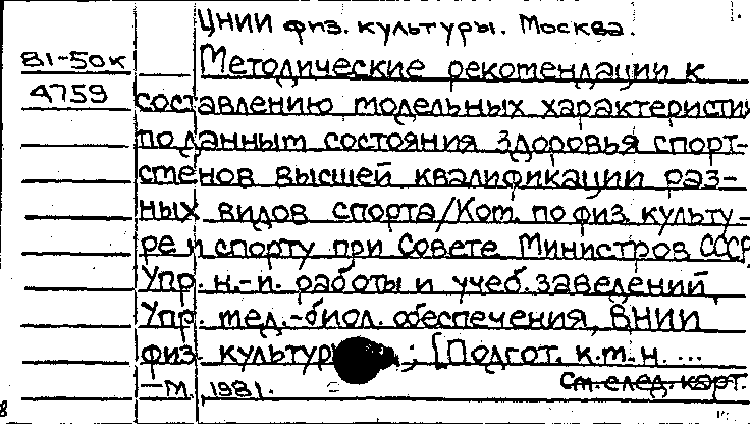 ЦНИИ физ. культуры. Москва.
81-50к
4759
Методические рекомендации к
составлению модельных характеристи
по данным состояния здоровья спорт-
сменов высшей квалификации раз-
ных видов спорта/Ком. по физ. культу-
ре и спорту при Совете Министров СССР,
Упр. н.-и. работы и учеб. заведений,
Упр. мед.-биол. обеспечения, ВНИИ
физ. культуры; [Подгот. к.м.н. ...
–М., 1981.
См. след. карт.